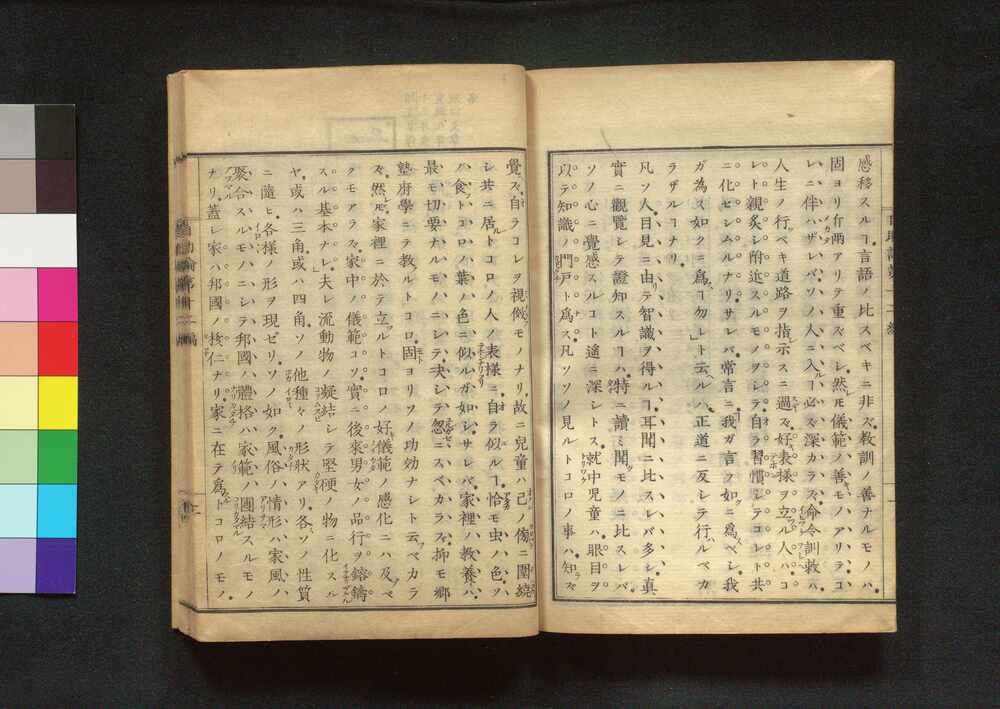 感移スルヿ言語ノ比スベキニ非ズ教訓ノ善ナルモノハ
固ヨリ斤兩アリテ重ズベシ然モ儀範ノ善モノアリテコ
レニ伴ハザレバソノ人ニ入ルヿ必ズ深カラズ命令訓敕ハ
人生ノ行ベキ道路ヲ指示スニ過ズ好表樣ヲ立ル人ハコ
レト親炙シ附近スルモノヲシテ自ラ習慣シテコレト共
ニ化セシムルナリサレバ常言ニ我ガ言ノ如クニ爲ベシ我
ガ為ス如クニ爲ヿ勿レト云ルハ正道ニ反シテ行ハルベカ
ラザルヿナリ
凡ソ人目見ニ由テ智識ヲ得ルヿ耳聞ニ比スレバ多シ真
實ニ觀覽シテ證知スルヿハ特ニ讀ミ聞クモノニ比スレバ
ソノ心ニ覺感スルコト遙ニ深シトス就中兒童ハ眼目ヲ
以テ知識ノ門戸ト爲ス凡ソソノ見ルトコロノ事ハ知ラズ
覺ズ自ラコレヲ視傚モノナリ故ニ兒童ハ己ノ傍ニ圍繞
シ共ニ居ルトコロノ人ノ表樣ニ自ラ似ルヿ恰モ虫ノ色ノ
ソノ食フトコロノ葉ノ色ニ似ルガ如シサレバ家裡ノ教養ハ
最モ切要ナルモノニシテ夫シテ忽ニスベカラズ抑モ郷
塾府學ニテ教ルトコロ固ヨリソノ功効ナシト云ベカラ
ズ然モ家裡ニ於テ立ルトコロノ好儀範ノ感化ニハ及ブベ
クモアラズ家中ノ儀範コソ實ニ後來男女ノ品行ヲ鎔鑄
スル基本ナレ夫レ流動物ノ凝結シテ堅硬ノ物ニ化スル
ヤ或ハ三角或ハ四角ソノ他種々ノ形状アリ各ソノ性質
ニ隨ヒ各樣ノ形ヲ現ゼリソノ如ク風俗ノ情形ハ家風ノ
聚合スルモノニシテ邦國ノ體格ハ家範ノ團結スルモノ
ナリ蓋シ家ハ邦國ノ核仁ナリ家ニ在テ爲トコロノモノ